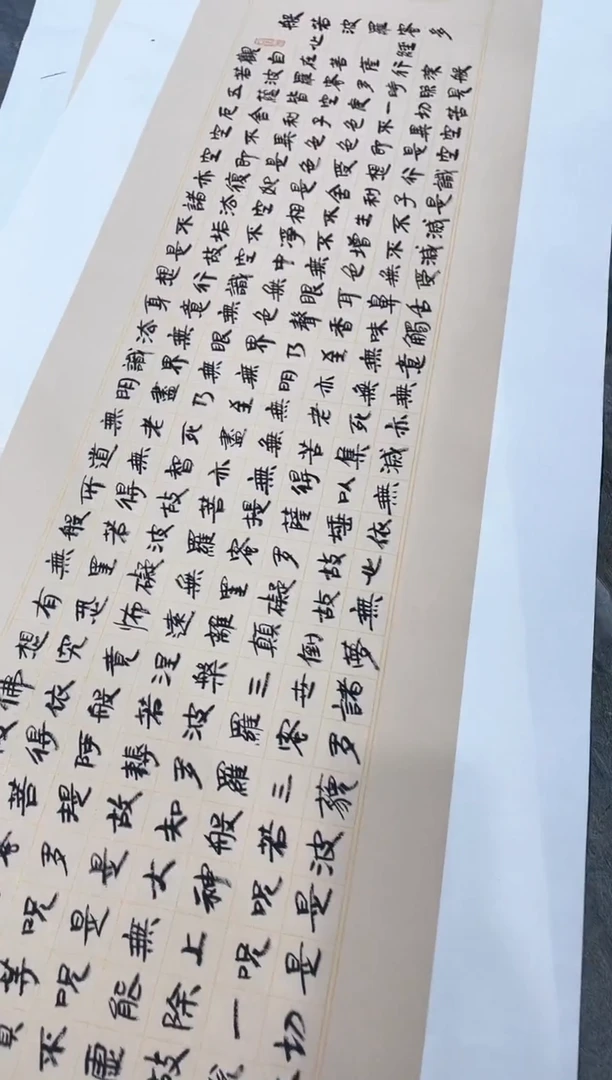 般若波羅蜜多
心經
觀自在菩薩行深般
若波羅蜜多時照見
五蘊皆空度一切苦
厄舍利子色不異空
空不異色色即是空
空即是色受想行識
亦復如是舍利子是
諸法空相不生不滅
不垢不淨不增不減
是故空中無色無受
想行識無眼耳鼻舌
身意無色聲香味觸
法無眼界乃至無意
識界無無明亦無無
明盡乃至無老死亦
無老死盡無苦集滅
道無智亦無得以無
所得故菩提薩埵依
般若波羅蜜多故心
無罣礙無罣礙故無
有恐怖遠離顛倒夢
想究竟涅槃三世諸
佛依般若波羅蜜多
得阿耨多羅三藐
菩提故知般若波
多是大神咒是
咒是無上咒是
等咒能除一切
不虛故